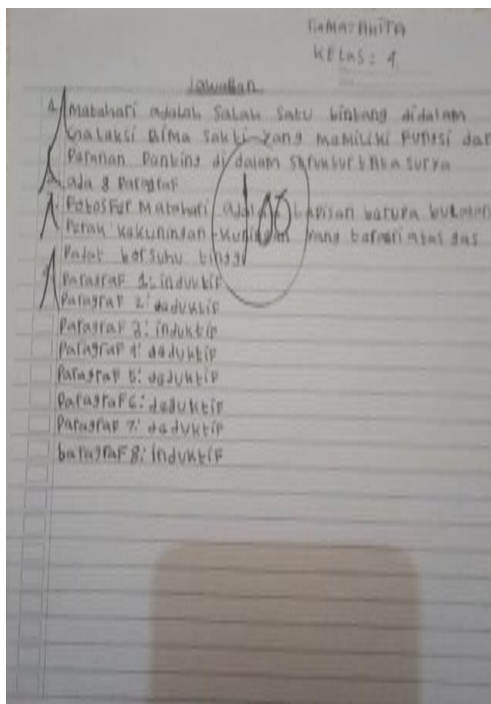 NaMa: ANITA
KELAS: 4
Jawaban
1. Matahari adalah Salah Satu bintang didalam
Galaksi Bima Sakti yang MaMiliki Fungsi dan
Paranan Panting di dalam Struktur tata surya
2. ada 8 Paragraf
3. FotosFer Matahari adalah Lapisan barupa
Perak Kakuningan-Kuningan yang bar atas gas
Padat barsuhu tinggi
4. ParagraF 1: induktiF
ParagraF 2: daduktiF
ParagraF 3: induktiF
ParagraF 4: daduktiF
ParagraF 5: daduktiF
ParagraF 6: daduktiF
ParagraF 7: daduktiF
baragraF 8: induktiF
100